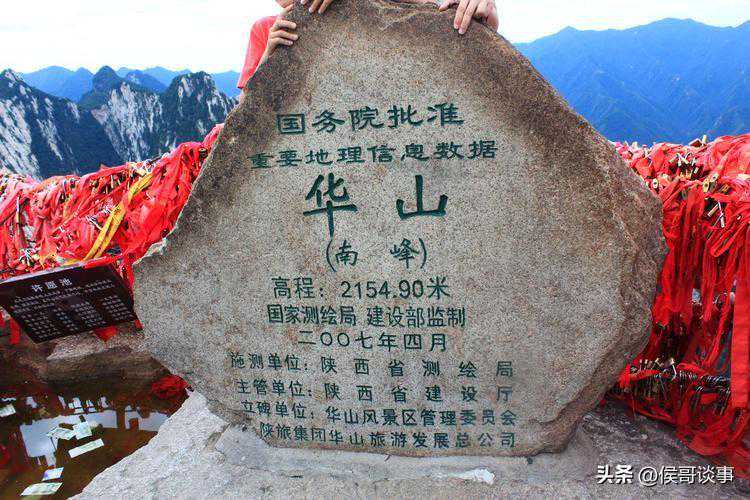 国务院批准
重要地理信息数据
华山
(南峰)
高程：2154.90米
国家测绘局 建设部监制
二〇〇七年四月
施测单位：陕西省测绘局
主管单位：陕西省建设厅
立碑单位：华山风景区管理委员会
陕旅集团华山旅游发展总公司
许愿池
头条 @侯哥谈事